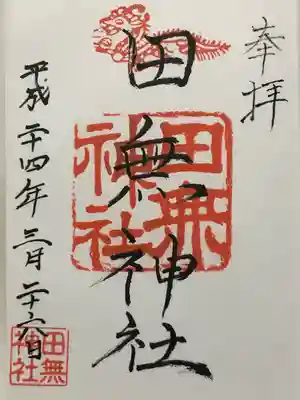 奉拝
田無神社
田無
神社
平成二十四年三月二十六日
田無
神社